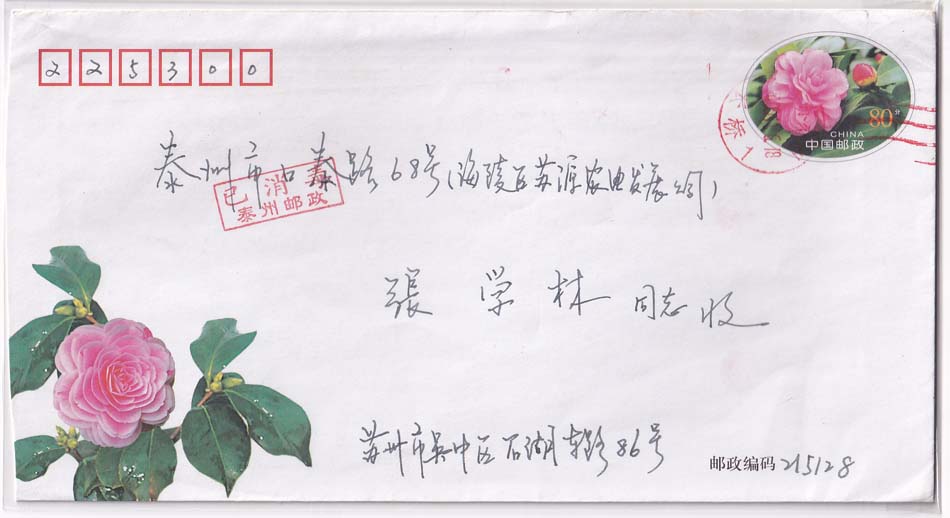 225300
80分
CHINA
中国邮政
泰州市口泰路68号(海陵区苏源农电发展公司)
已消毒
泰州邮政
張学林 同志 收
苏州市吴中区石湖东路86号
邮政编码 215128